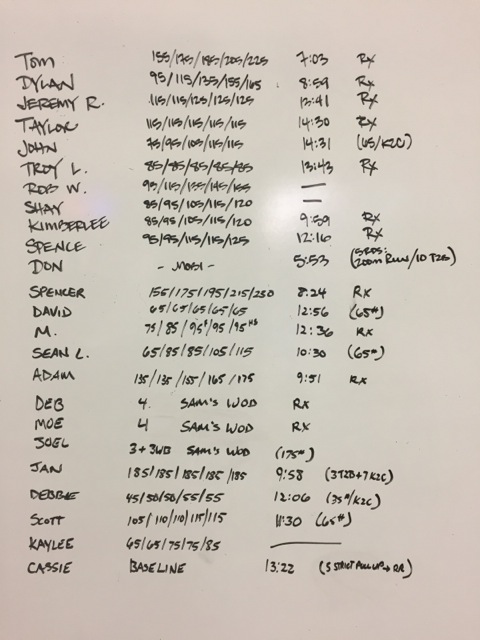 TOM 155/175/185/205/225 7:03 RX
DYLAN 95/115/135/155/165 8:59 RX
JEREMY R. 115/115/125/125/125 13:41 RX
TAYLOR 115/115/115/115/115 14:30 RX
JOHN 75/95/105/115/115 14:31 (65/K2C)
TROY L. 85/85/85/85/85 13:43 RX
ROB W. 95/115/135/145/155 —
SHAY 85/95/105/115/120 —
KIMBERLEE 85/95/105/115/120 9:59 RX
SPENCE 95/95/115/115/125 12:16 RX
DON - MOBI - 5:53 (5RDS: 200m RUN/10 T2B)
SPENCER 155/175/195/215/230 8:24 RX
DAVID 65/65/65/65/65 12:56 (65#)
M. 75/85/95/95/95 12:36 RX
SEAN L. 65/85/85/105/115 10:30 (65#)
ADAM 135/135/155/165/175 9:51 RX
DEB 4. SAM'S WOD RX
MOE 4 SAM'S WOD RX
JOEL 3+3WB SAM'S WOD (175#)
JAN 185/185/185/185/185 9:58 (3T2B+7K2C)
DEBBIE 45/50/50/55/55 12:06 (35#/K2C)
SCOTT 105/110/110/115/115 11:30 (65#)
KAYLEE 65/65/75/75/85 —
CASSIE BASELINE 13:22 (5 STRICT PULL UP → RR)